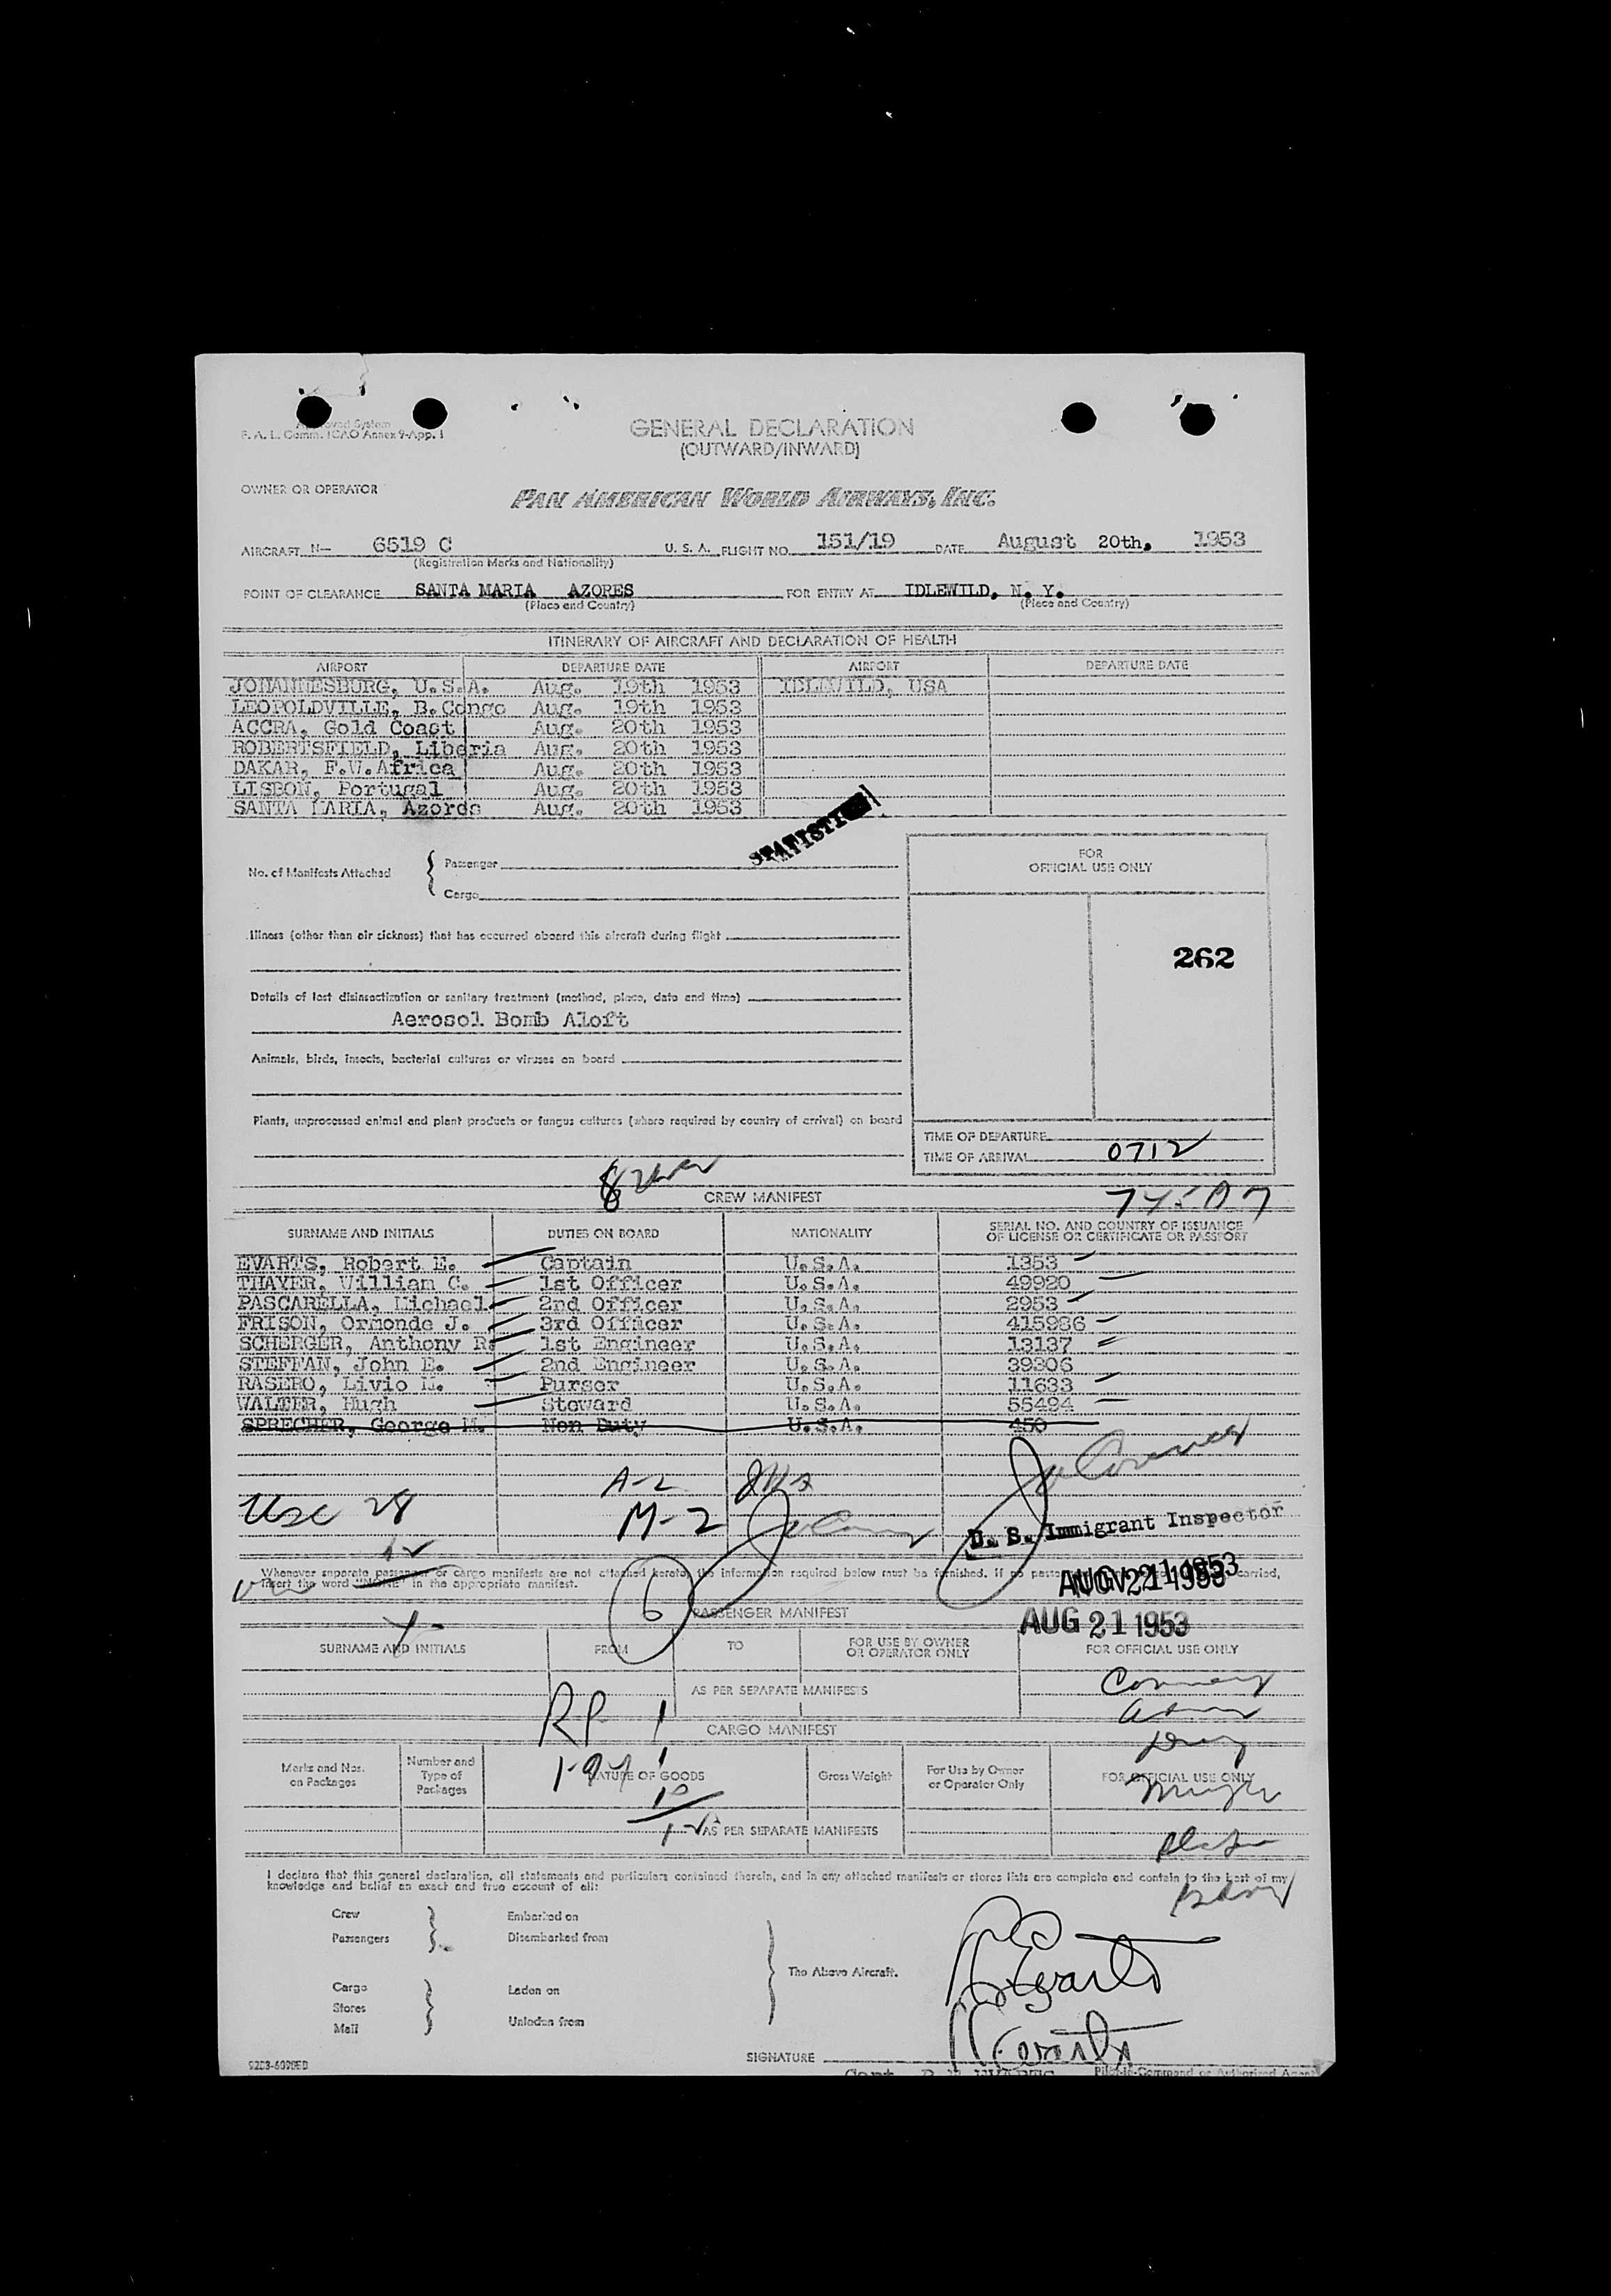 Approved System
F. A. L. Comm. ICAO Annex 9-App. 1
GENERAL DECLARATION
(OUTWARD/INWARD)
OWNER OR OPERATOR PAN AMERICAN WORLD AIRWAYS, INC.
AIRCRAFT N- 6519 C U. S. A. FLIGHT NO. 151/19 DATE August 20th, 1953
(Registration Marks and Nationality)
POINT OF CLEARANCE SANTA MARIA AZORES FOR ENTRY AT IDLEWILD, N. Y.
(Place and Country) (Place and Country)
ITINERARY OF AIRCRAFT AND DECLARATION OF HEALTH
AIRPORT DEPARTURE DATE AIRPORT DEPARTURE DATE
JOHANNESBURG, U.S.A. Aug. 19th 1953 IDLEWILD, USA
LEOPOLDVILLE, B.Congo Aug. 19th 1953
ACCRA, Gold Coast Aug. 20th 1953
ROBERTSFIELD, Liberia Aug. 20th 1953
DAKAR, F.W.Africa Aug. 20th 1953
LISBON, Portugal Aug. 20th 1953
SANTA MARIA, Azores Aug. 20th 1953
No. of Manifests Attached
Passenger
Cargo
FOR
OFFICIAL USE ONLY
262
Illness (other than air sickness) that has occurred aboard this aircraft during flight
Details of last disinsectization or sanitary treatment (method, place, date and time)
Aerosol Bomb Aloft
Animals, birds, insects, bacterial cultures or viruses on board
Plants, unprocessed animal and plant products or fungus cultures (where required by country of arrival) on board
TIME OF DEPARTURE
TIME OF ARRIVAL 0712
8
CREW MANIFEST
SURNAME AND INITIALS DUTIES ON BOARD NATIONALITY SERIAL NO. AND COUNTRY OF ISSUANCE
OF LICENSE OR CERTIFICATE OR PASSPORT
EVARTS, Robert E. Captain U.S.A. 1353
THAYER, William C. 1st Officer U.S.A. 49920
PASCARELLA, Michael 2nd Officer U.S.A. 2953
FRISON, Ormonde J. 3rd Officer U.S.A. 415986
SCHERGER, Anthony R. 1st Engineer U.S.A. 13137
STEFFAN, John E. 2nd Engineer U.S.A. 39306
RASERO, Livio M. Purser U.S.A. 11633
WALTER, Hugh Steward U.S.A. 55494
SPRECHER, George M. Non Duty U.S.A. 450
A-2
Usc 28 M-2
U. S. Immigrant Inspector
Whenever separate passenger or cargo manifests are not attached hereto, the information required below must be furnished. If no passengers carried,
insert the word "NONE" in the appropriate manifest.
AUG 21 1953
AUG 21 1953
6
PASSENGER MANIFEST
SURNAME AND INITIALS FROM TO FOR USE BY OWNER
OR OPERATOR ONLY FOR OFFICIAL USE ONLY
AS PER SEPARATE MANIFESTS
RP 1
CARGO MANIFEST
Marks and Nos.
on Packages
Number and
Type of
Packages
NATURE OF GOODS
Gross Weight
For Use by Owner
or Operator Only
FOR OFFICIAL USE ONLY
AS PER SEPARATE MANIFESTS
I declare that this general declaration, all statements and particulars contained therein, and in any attached manifests or stores lists are complete and contain to the best of my
knowledge and belief an exact and true account of all:
Crew
Passengers
Embarked on
Disembarked from
Cargo
Stores
Mail
Laden on
Unladen from
The Above Aircraft.
SIGNATURE
Capt. R.E. EVARTS Pilot-in-Command or Authorized Agent